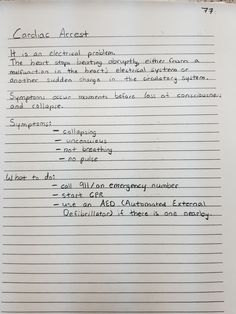 77
Cardiac Arrest
It is an electrical problem.
The heart stops beating abruptly, either from a
malfunction in the heart's electrical system or
another sudden change in the circulatory system.
Symptoms occur moments before loss of consciousness
and collapse.
Symptoms:
- collapsing
- unconscious
- not breathing
- no pulse
What to do:
- call 911/an emergency number
- start CPR
- use an AED (Automated External
Defibrillator) if there is one nearby.